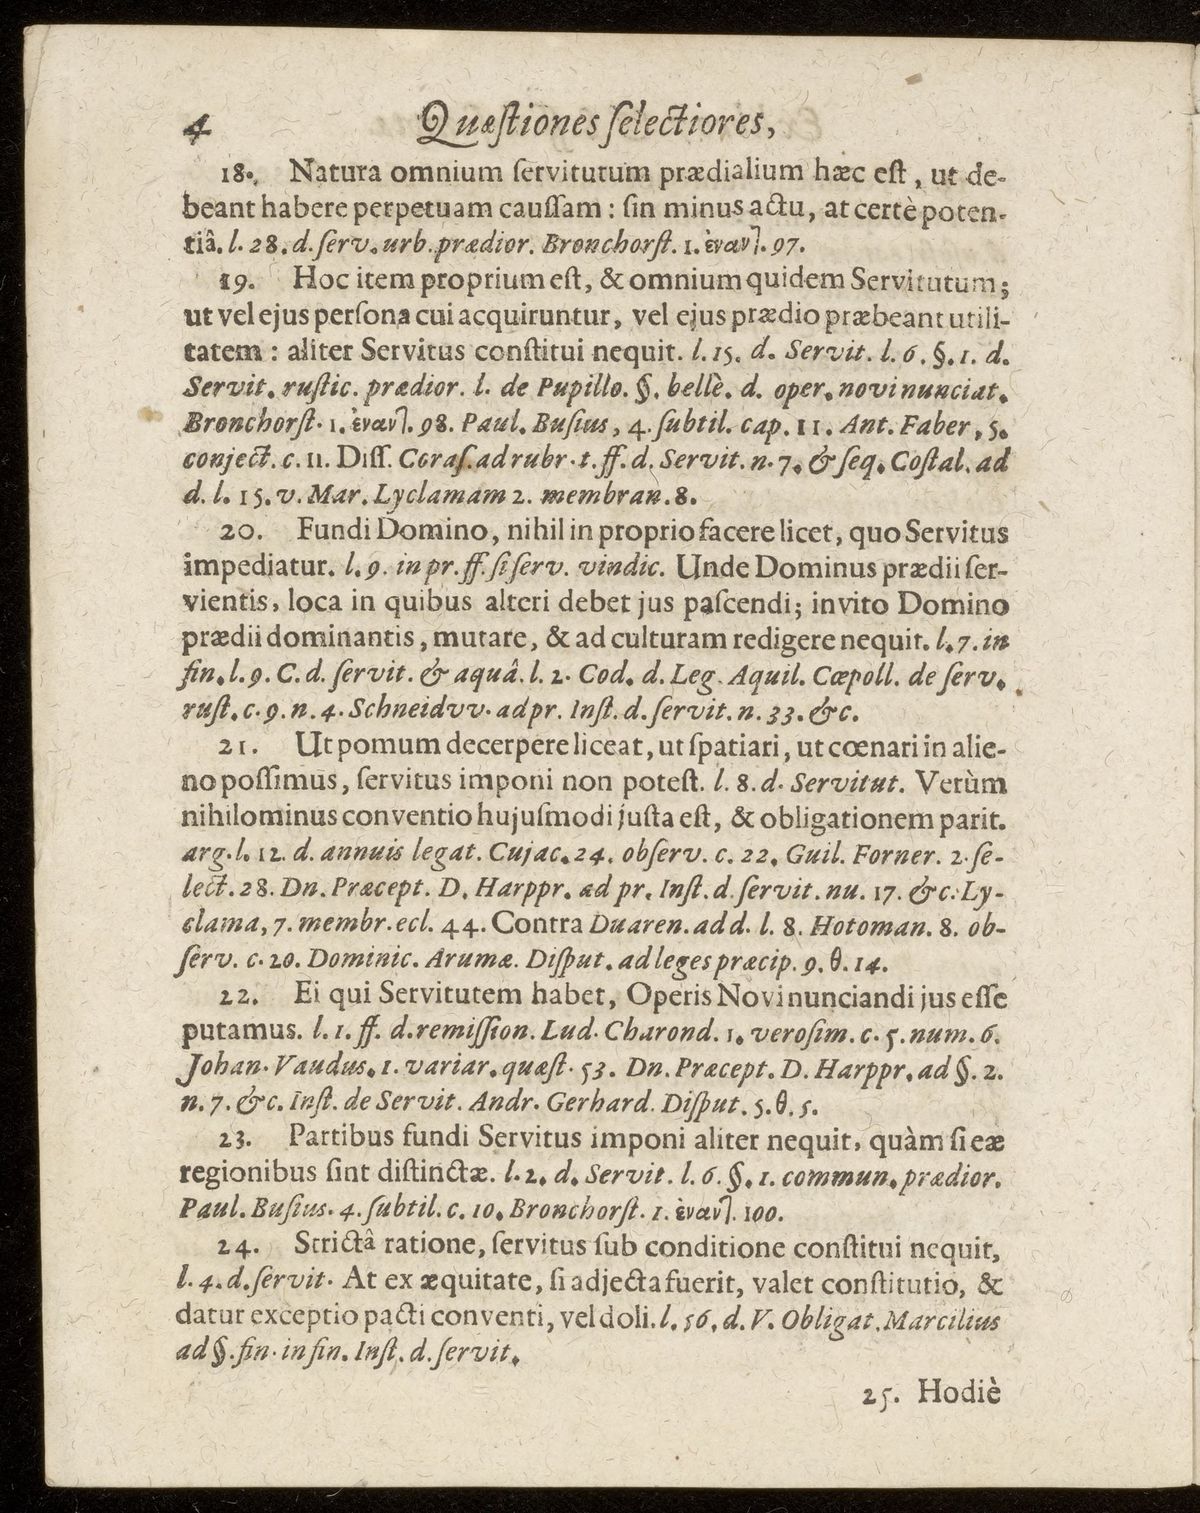 4 Quæſtiones ſelectiores,
18. Natura omnium ſervitutum prædialium hæc eſt, ut de-
beant habere perpetuam cauſſam : ſin minus actu, at certè poten-
tiâ. l. 28. d. ſerv. urb. prædior. Bronchorſt. 1. ἐναντ. 97.
19. Hoc item proprium eſt, & omnium quidem Servitutum;
ut vel ejus perſona cui acquiruntur, vel ejus prædio præbeant utili-
tatem : aliter Servitus conſtitui nequit. l. 15. d. Servit. l. 6. §. 1. d.
Servit. ruſtic. prædior. l. de Pupillo. §. bellè. d. oper. novi nunciat.
Bronchorſt. 1. ἐναντ. 98. Paul. Buſius, 4. ſubtil. cap. 11. Ant. Faber, 5.
conject. c. 11. Diſſ. Coraſ. ad rubr. t. ff. d. Servit. n. 7. & ſeq. Coſtal. ad
d. l. 15. v. Mar. Lyclamam 2. membran. 8.
20. Fundi Domino, nihil in proprio facere licet, quo Servitus
impediatur. l. 9. in pr. ff. ſi ſerv. vindic. Unde Dominus prædii ſer-
vientis, loca in quibus alteri debet jus paſcendi; invito Domino
prædii dominantis, mutare, & ad culturam redigere nequit. l. 7. in
fin. l. 9. C. d. ſervit. & aquâ. l. 2. Cod. d. Leg. Aquil. Cœpoll. de ſerv.
ruſt. c. 9. n. 4. Schneidvv. ad pr. Inſt. d. ſervit. n. 33. &c.
21. Ut pomum decerpere liceat, ut ſpatiari, ut cœnari in alie-
no poſſimus, ſervitus imponi non poteſt. l. 8. d. Servitut. Verùm
nihilominus conventio hujuſmodi juſta eſt, & obligationem parit.
arg. l. 12. d. annuis legat. Cujac. 24. obſerv. c. 22. Guil. Forner. 2. ſe-
lect. 28. Dn. Præcept. D. Harppr. ad pr. Inſt. d. ſervit. nu. 17. &c. Ly-
clama, 7. membr. ecl. 44. Contra Duaren. ad d. l. 8. Hotoman. 8. ob-
ſerv. c. 20. Dominic. Arumæ. Diſput. ad leges præcip. 9. θ. 14.
22. Ei qui Servitutem habet, Operis Novi nunciandi jus eſſe
putamus. l. 1. ff. d. remiſſion. Lud. Charond. 1. veroſim. c. 5. num. 6.
Johan. Vaudus. 1. variar. quæſt. 53. Dn. Præcept. D. Harppr. ad §. 2.
n. 7. &c. Inſt. de Servit. Andr. Gerhard. Diſput. 5. θ. 5.
23. Partibus fundi Servitus imponi aliter nequit, quàm ſi eæ
regionibus ſint diſtinctæ. l. 2. d. Servit. l. 6. §. 1. commun. prædior.
Paul. Buſius. 4. ſubtil. c. 10. Bronchorſt. 1. ἐναντ. 100.
24. Strictâ ratione, ſervitus ſub conditione conſtitui nequit,
l. 4. d. ſervit. At ex æquitate, ſi adjecta fuerit, valet conſtitutio, &
datur exceptio pacti conventi, vel doli. l. 56. d. V. Obligat. Marcilius
ad §. fin. in fin. Inſt. d. ſervit.
25. Hodiè